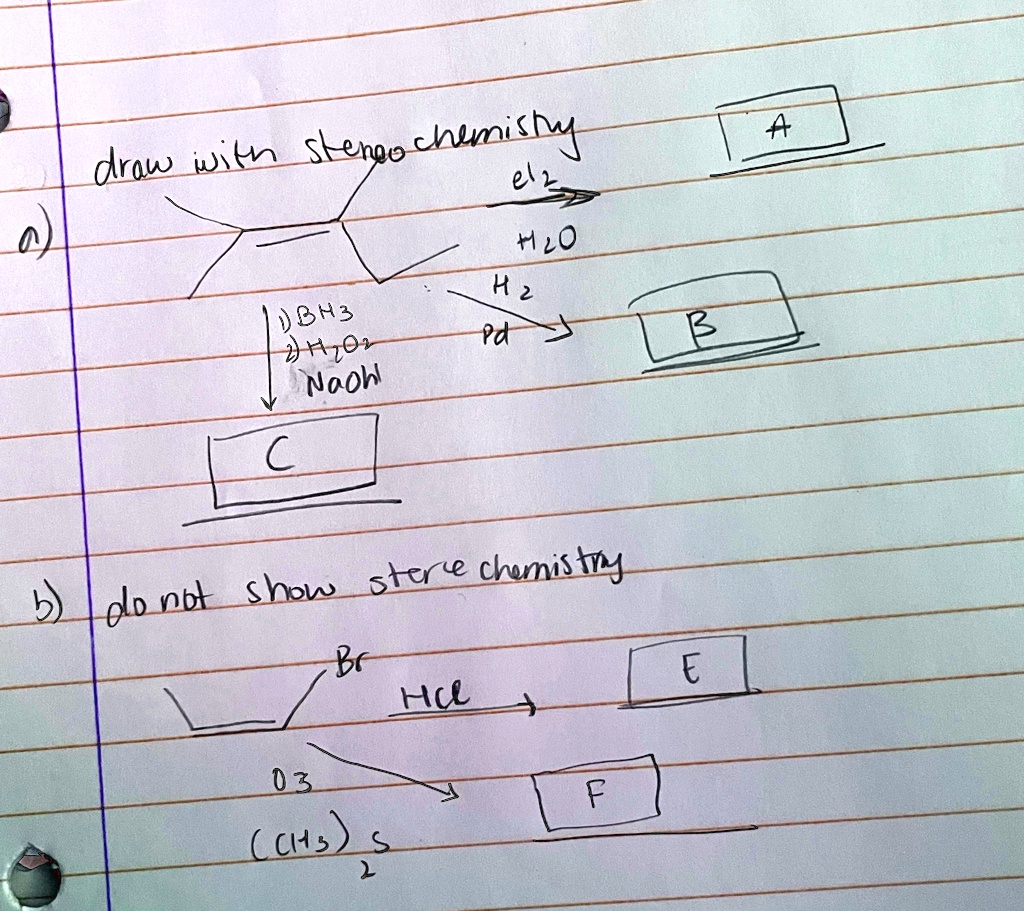 draw with stereochemistry
A
a)
cl2
H2O
H2
Pd
B
1) BH3
2) H2O2
NaOH
C
b) do not show stereochemistry
Br
HCl
E
O3
(CH3)2S
F